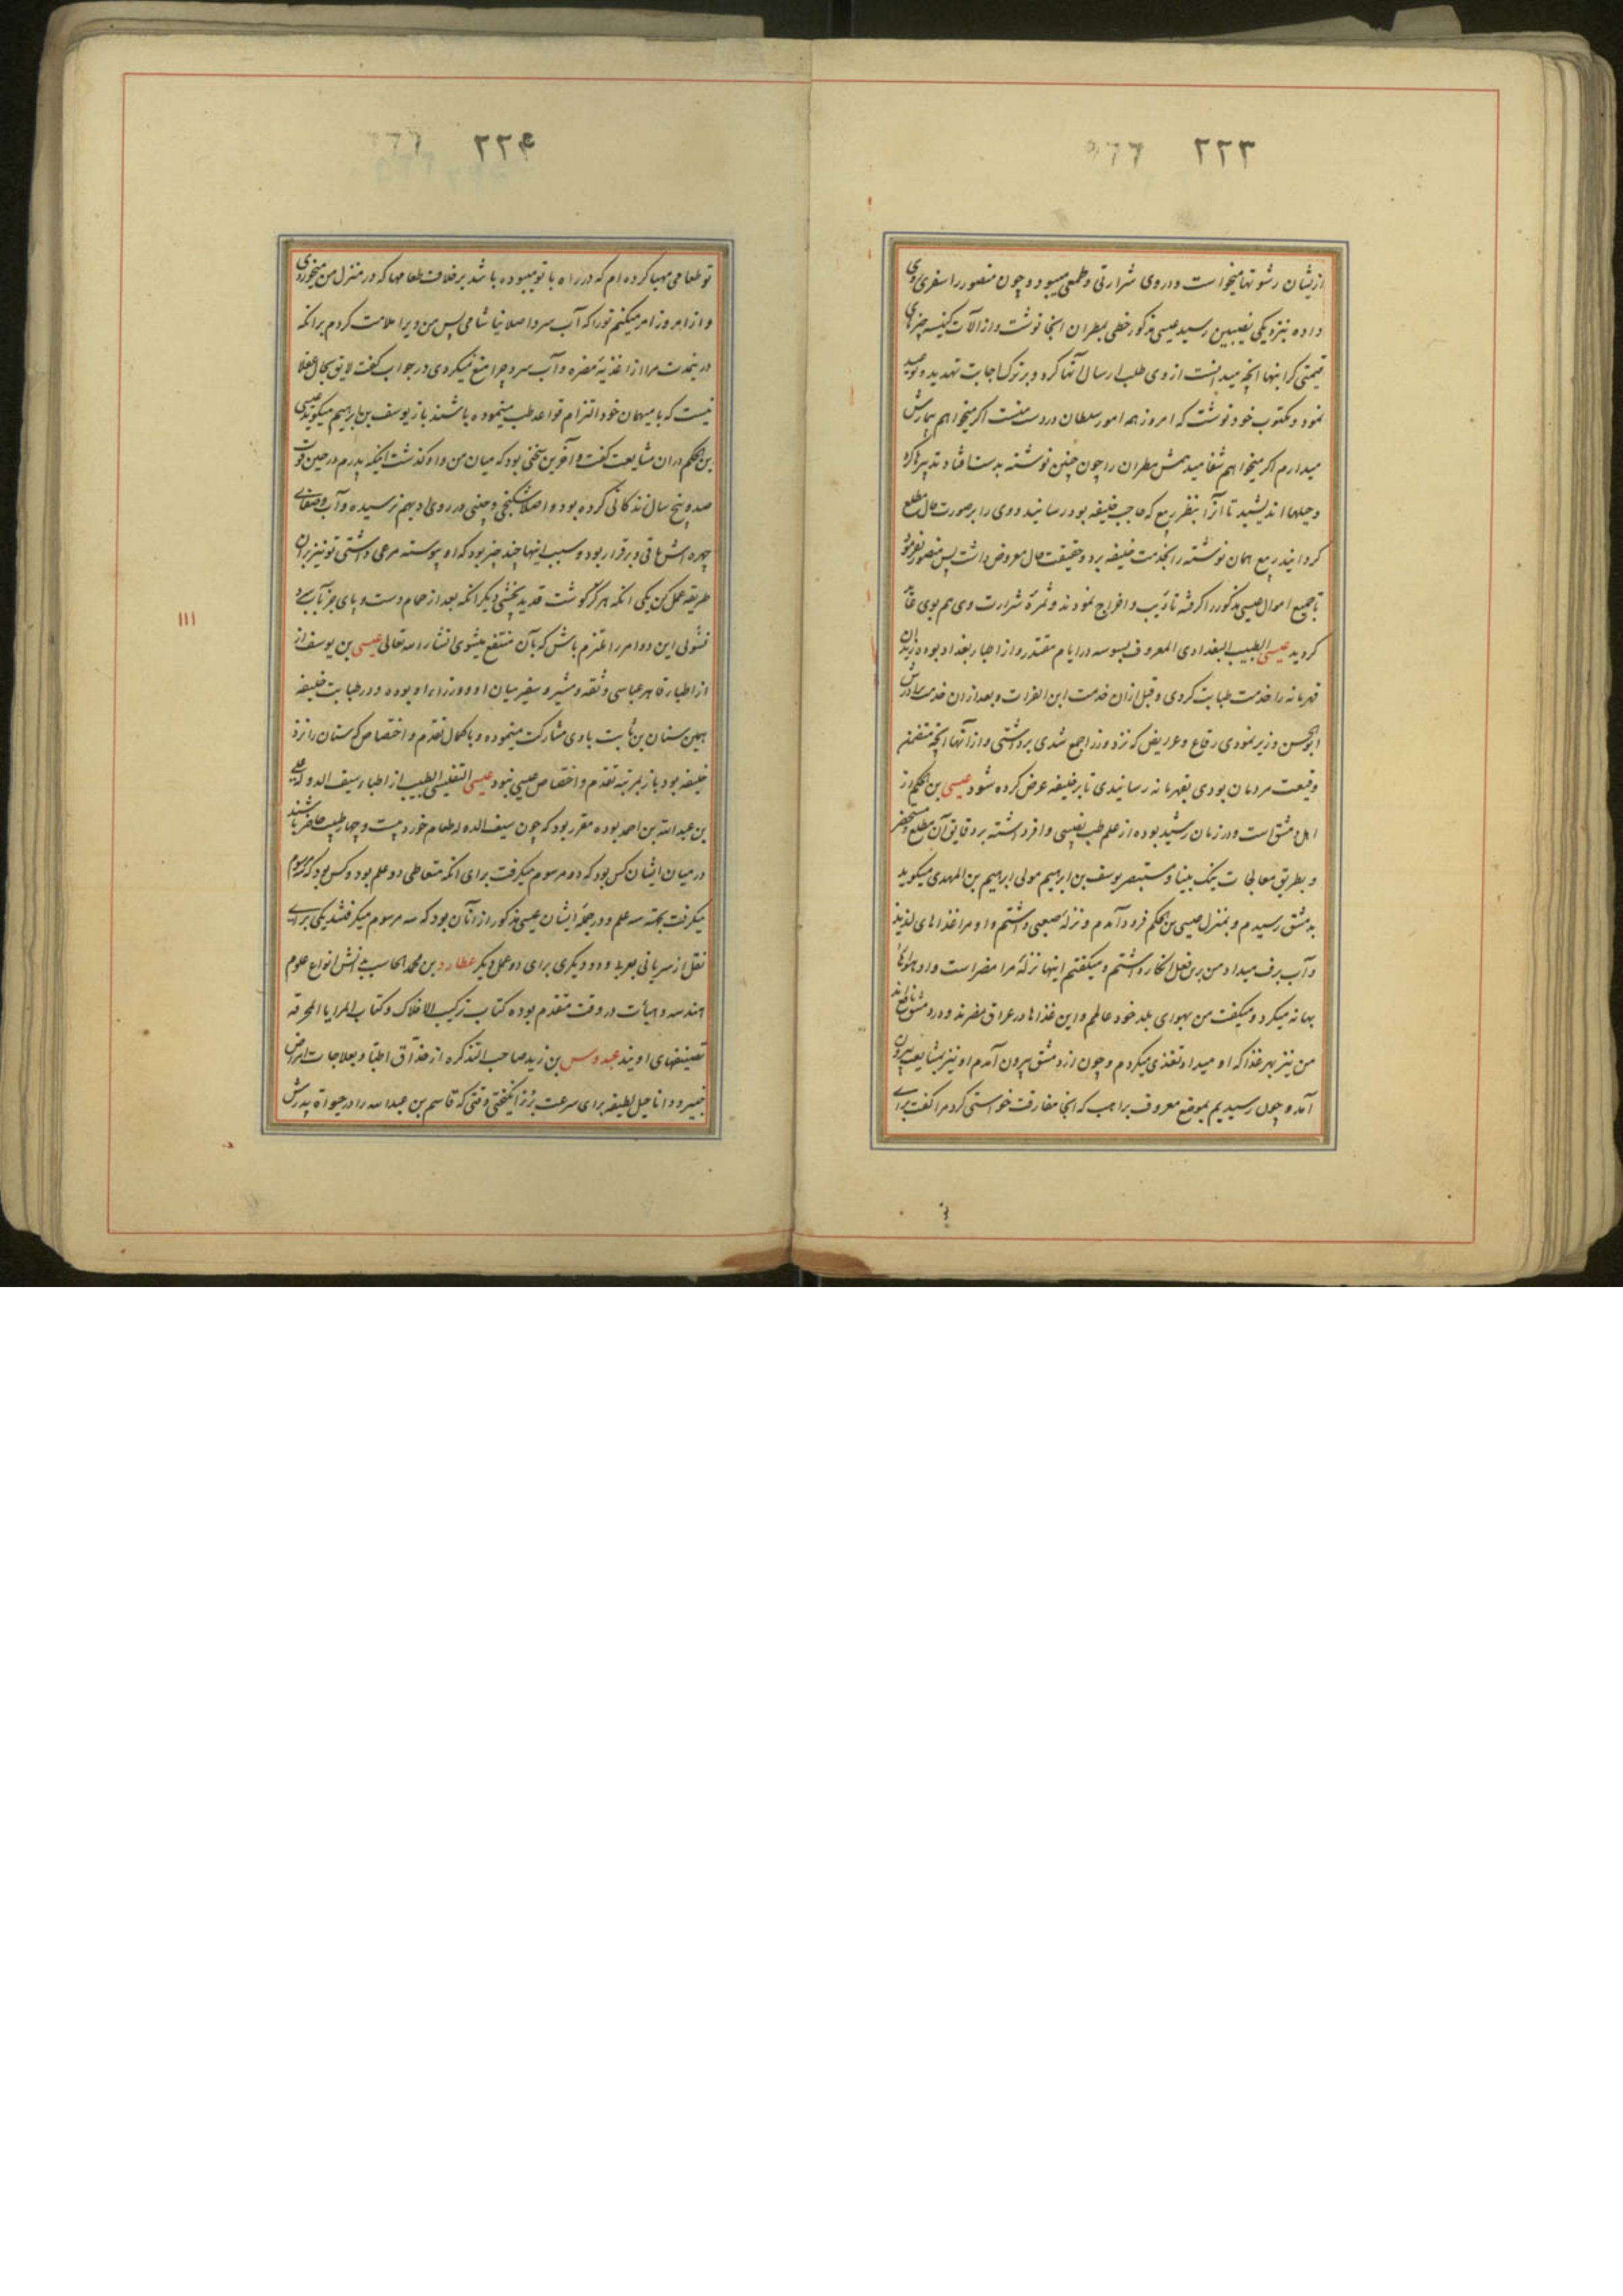 ۲۲۳
ازیشان رشوتها میخواست و در وی شرارتی و طمعی میبود و چون منصور را سفری روی
داده بنزدیکی نصیبین رسید عیسی مذکور خطی بمطران آنجا نوشت و از آلات کنیسه چیزهای
قیمتی گرانبها آنچه میدانست از وی طلب ارسال آنها کرد و بر ترک اجابت تهدید و وعید
نمود و بمکتوب خود نوشت که امروز همه امور سلطان در دست منست اگر میخواهم بیمارش
میدارم اگر میخواهم شفا میدهمش مطران را چون چنین نوشته بدست افتاد تدبیرها کرد
و حیلها اندیشید تا آنرا بنظر ربیع که حاجب خلیفه بود رسانید و وی را بر صورت حال مطلع
گردانید ربیع همان نوشته را بخدمت خلیفه برد و حقیقت حال معروض داشت پس منصور بفرمود
تا جمیع اموال عیسی مذکور را گرفته تأدیب و اخراج نمودند و ثمره شرارت وی هم بوی عاید
گردید عیسی الطبیب البغدادی المعروف بسوسه در ایام مقتدر و از اطباء بغداد بوده زیدان
قهرمانه را خدمت طبابت کردی و قبل از ان خدمت ابن الفرات و بعد از ان خدمت برادرش
ابوالحسن وزیر نمودی رقاع و عرایض که نزد وزرا جمع شدی برداشتی و از آنها آنچه متضمن
وقیعت مردمان بودی بقهرمانه رسانیدی تا بر خلیفه عرض کرده شود عیسی بن الحکم از
اهل دمشق است و در زمان رشید بوده از علم طب نصیبی وافر داشته بر دقایق آن مطلع و مستحضر
و بطریق معالجات نیک بینا و مستبصر یوسف بن ابرهیم مولی ابرهیم بن المهدی میگوید
بدمشق رسیدم و بمنزل عیسی بن الحکم فرود آمدم و نزله صعبی داشتم و او مرا غذاهای لذیذ
و آب برف میداد من برین فعل انکار داشتم و میگفتم اینها نزله مرا مضر است و او هوا را
بهانه میکرد و میگفت من بهوای بلد خود عالمم و این غذاها در عراق مضرند و در دمشق نافع اند
من نیز بهر غذا که او میداد تغذی میکردم و چون از دمشق بیرون آمدم او نیز بمشایعت بیرون
آمد و چون رسیدیم بموضع معروف براهب که آنجا مفارقت خواستی کرد مرا گفت برای
۲۲۴
تو طعامی مهیا کرده ام که در راه با تو میبوده باشد بر خلاف طعامها که در منزل من میخوردی
و از امروز امر میکنم تو را که آب سرد اصلا نیاشامی پس من ویرا ملامت کردم بر آنکه
در ینمدت مرا از اغذیه مضره و آب سرد چرا منع نمیکردی در جواب گفت لایق بحال عقلا
نیست که با میهمان خود التزام قواعد طب مینموده باشند باز یوسف بن ابرهیم میگوید عیسی
بن الحکم در ان مشایعت گفت و آخرین سخنی بود که میان من و او گذشت اینکه پدرم در حین فوت
صد و پنج سال زندگانی کرده بود و اصلا شکنجی و چینی در روی او بهم نرسیده و آب و صفای
چهره اش باقی و برقرار بود و سبب اینها چند چیز بود که او پیوسته مرعی داشتی تو نیز بر آن
طریقه عمل کن یکی آنکه هرگز گوشت قدید نچشی دیگر آنکه بعد از حمام دست و پای جز بآب سرد
نشوئی این دو امر را ملتزم باش که بآن منتفع میشوی انشاء الله تعالی عیسی بن یوسف از
از اطباء قاهر عباسی و ثقه و مشیر و سفیر میان او و وزراء او بوده و در طبابت خلیفه
همین سنان بن ثابت با وی مشارکت مینموده و با کمال تقدم و اختصاص که سنان را نزد
خلیفه بود باز بمرتبه تقدم و اختصاص عیسی نبود عیسی التفلیسی الطبیب از اطباء سیف الدوله علی
بن عبدالله بن احمد بوده مقرر بود که چون سیف الدوله طعام خورد بیست و چهار طبیب حاضر باشند
در میان ایشان کس بود که دو مرسوم میگرفت برای آنکه متعاطی دو علم بود و کس بود که سه مرسوم
میگرفت بجهة سه علم و در جمله ایشان عیسی مذکور از آنان بود که سه مرسوم میگرفتند یکی برای
نقل از سریانی بعربی و دو دیگری برای دو عمل دیگر عطارد بن محمد الحاسب بدانش انواع علوم
هندسه و هیأت در وقت متقدم بوده کتاب ترکیب الافلاک و کتاب المرایا المحرقه
تصنیفهای اویند عبدوس بن زید صاحب التذکره از حذاق اطبا و بعلاجات امراض
خبیر و دانا حیل لطیفه برای سرعت برء انگیختی وقتی که قاسم بن عبدالله را در حیوة پدرش